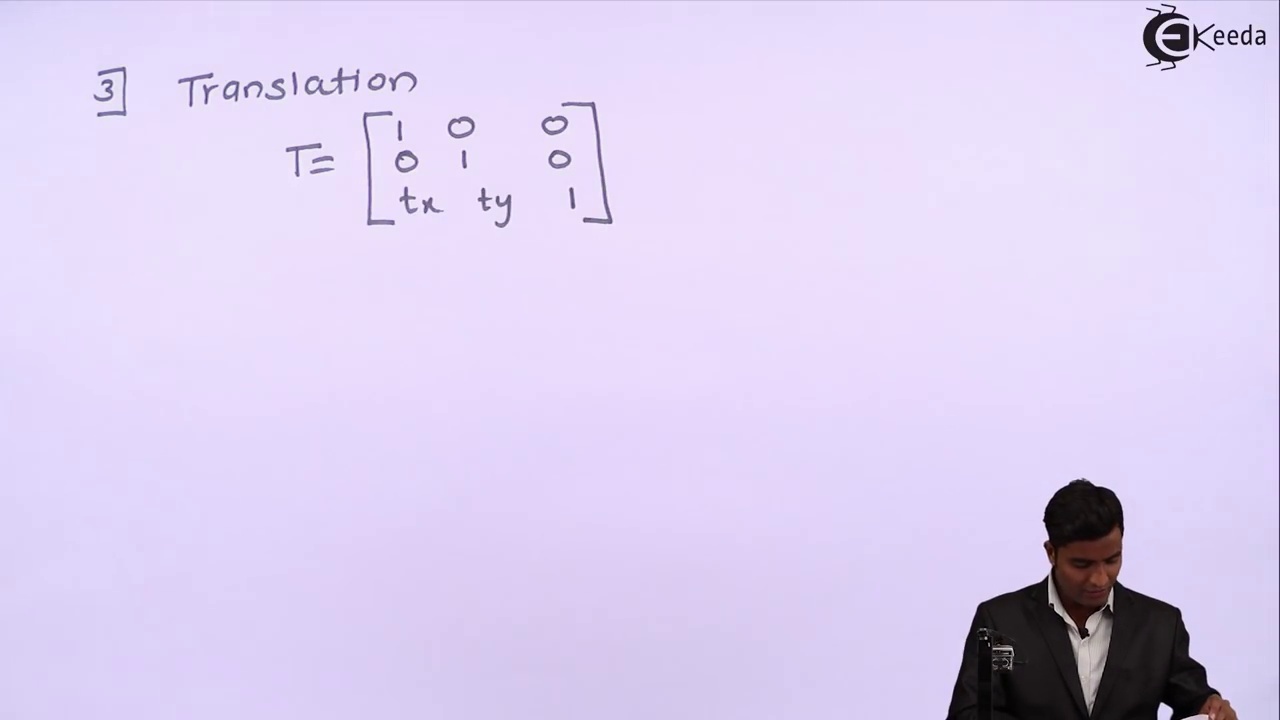 EKeeda
3] Translation
T= [ 1 0 0
0 1 0
tx ty 1 ]